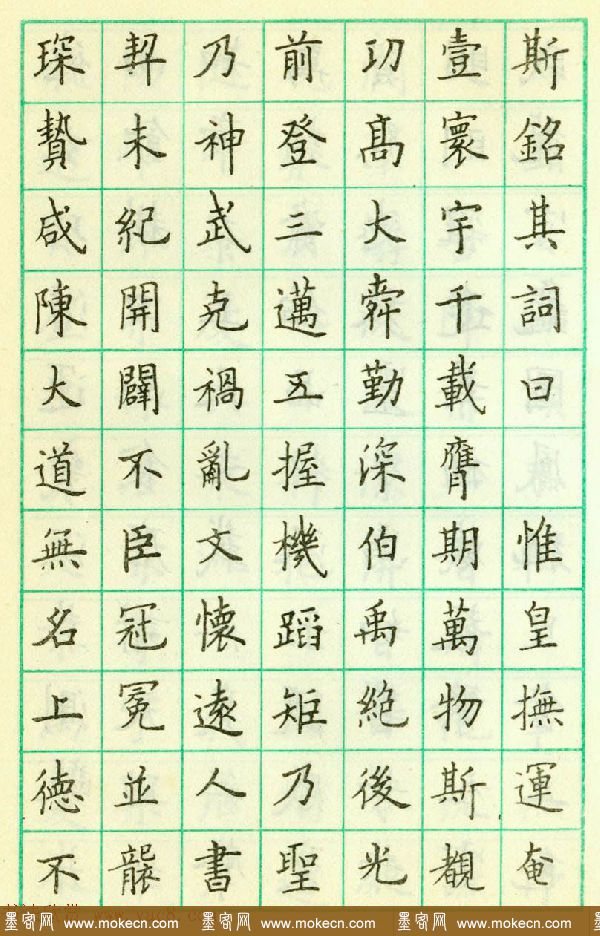 斯銘其詞曰 惟皇撫運奄
壹寰宇千載膺期萬物斯覩
功高大舜勤深伯禹絶後光
前登三邁五握機蹈矩乃聖
乃神武克禍亂文懷遠人書
契未紀開闢不臣冠冕並襲
琛贄咸陳大道無名上德不
墨客网 www.mokecn.com 墨客网 www.mokecn.com 墨客网 www.mokecn.com